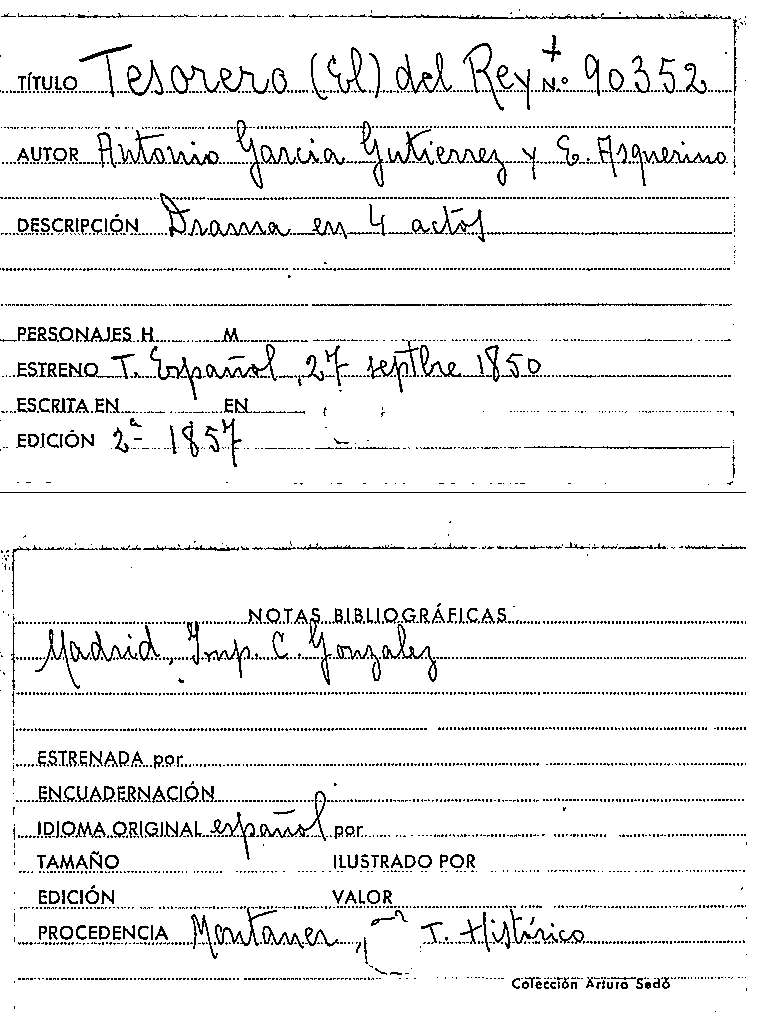 TÍTULO Tesorero (El) del Rey + N.º 90352
AUTOR Antonio Garcia Gutierrez y E. Asquerino
DESCRIPCIÓN Drama en 4 actos
PERSONAJES H M
ESTRENO T. Español, 27 septbre 1850
ESCRITA EN EN
EDICIÓN 2ª 1857
NOTAS BIBLIOGRÁFICAS
Madrid, Imp. C. Gonzalez
ESTRENADA por
ENCUADERNACIÓN
IDIOMA ORIGINAL español por
TAMAÑO ILUSTRADO POR
EDICIÓN VALOR
PROCEDENCIA Montaner, T. Histórico
Colección Arturo Sedó